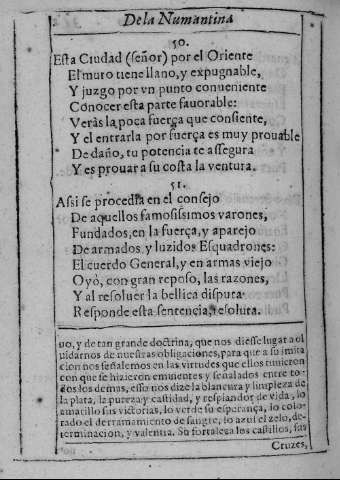 De la Numantina
50.
Esta Ciudad (señor) por el Oriente
El muro tiene llano, y expugnable,
Y juzgo por vn punto conueniente
Cònocer esta parte fauorable:
Veràs la poca fuerça que consiente,
Y el entrarla por fuerça es muy prouable
De daño, tu potencia te assegura
Y es prouar a su costa la ventura.
51.
Assi se procedia en el consejo
De aquellos famosissimos varones,
Fundados, en la fuerça, y aparejo
De armados, y luzidos Esquadrones:
El cuerdo General, y en armas viejo
Oyò, con gran reposo, las razones,
Y al resoluer la bellica disputa
Responde esta sentencia, resoluta.
uo, y de tan grande doctrina, que nos diesse lugar a ol
uidarnos de nuestras obligaciones, para que a su imita
cion nos señalemos en las virtudes que ellos tuuieron
con que se hizieron eminentes y señalados entre to-
dos los demas, esso nos dize la blancura y limpieza de
la plata, la pureza y castidad, y resplandor de vida, lo
amarillo sus victorias, lo verde su esperança, lo colo-
rado el derramamiento de sangre, lo azul el zelo, de-
terminacion, y valentia. Su fortaleza los castillos, sus
Cruzes,